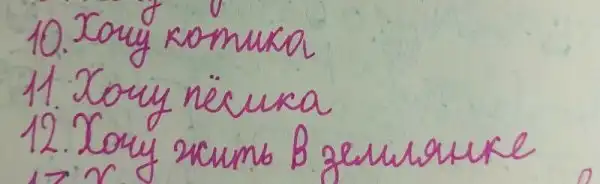 10. Хочу котика
11. Хочу пёсика
12. Хочу жить в землянке